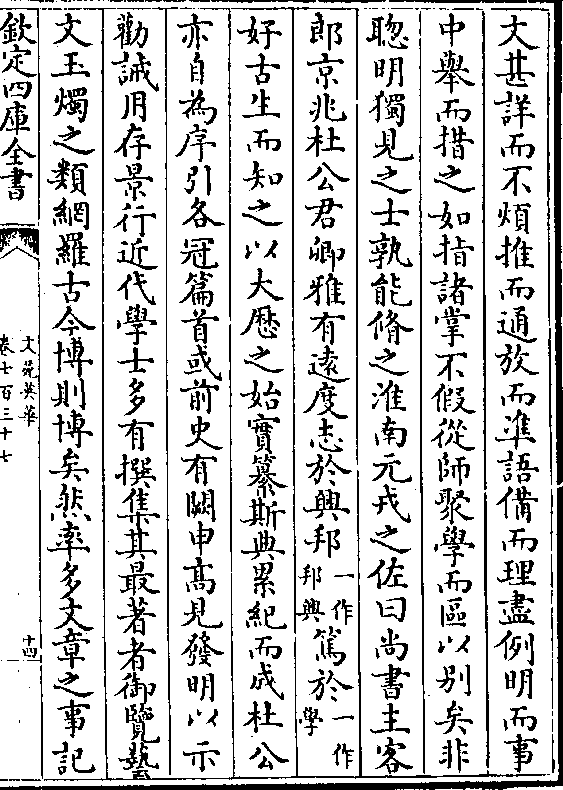 文甚詳而不煩推而通放而準語備而理盡例明而事
中舉而措之如指諸掌不假從師聚學而區以別矣非
聰明獨見之士孰能脩之淮南元戎之佐曰尚書主客
郎京兆杜公君卿雅有遠度志於興邦一作邦興篤於一作學
好古生而知之以大厯之始實纂斯典累紀而成杜公
亦自為序引各冠篇首或前史有闕申髙見發明以示
勸誡用存景行近代學士多有撰集其最著者御覽藝
文玉燭之類網羅古今博則博矣然率多文章之事記
欽定四庫全書
文苑英華
卷七百三十七
十四